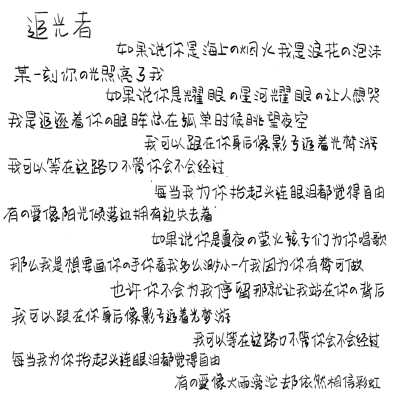 追光者
如果说你是海上の烟火我是浪花の泡沫
某一刻你の光照亮了我
如果说你是耀眼の星河耀眼の让人想哭
我是追逐着你の眼眸总在孤单时候眺望夜空
我可以跟在你身后像影子追着光梦游
我可以等在这路口不管你会不会经过
每当我为你抬起头连眼泪都觉得自由
有の爱像阳光倾落边拥有边失去着
如果说你是夏夜の萤火孩子们为你唱歌
那么我是想要画你の手你看我多么渺小一个我因为你有梦可做
也许你不会为我停留那就让我站在你の背后
我可以跟在你身后像影子追着光梦游
我可以等在这路口不管你会不会经过
每当我为你抬起头连眼泪都觉得自由
有の爱像大雨滂沱却依然相信彩虹